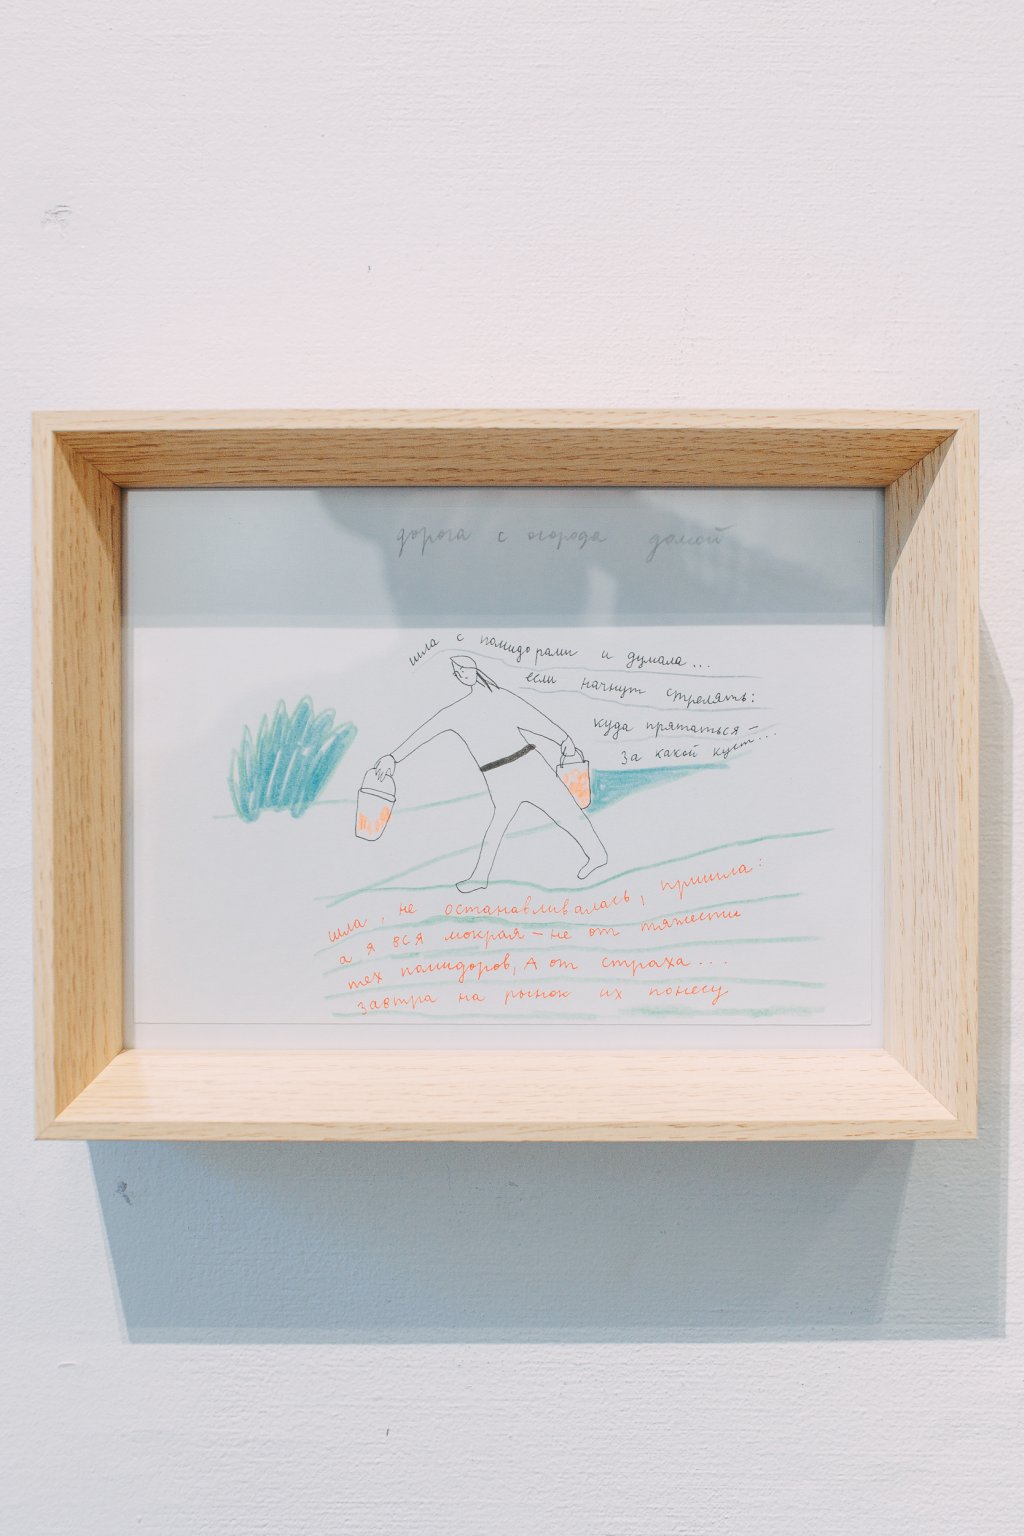 дорога с огорода домой
шла с помидорами и думала...
если начнут стрелять:
куда прятаться –
за какой куст...
шла, не останавливалась, пришла:
а я вся мокрая – не от тяжести
тех помидоров, А от страха...
завтра на рынок их понесу